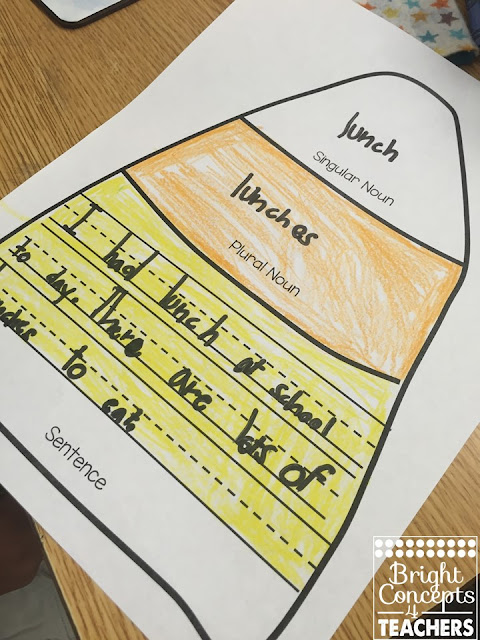 lunch
Singular Noun
lunches
Plural Noun
I had lunch at school
to day. There are lots of
to eat
Sentence
Bright
Concepts
4
TEACHERS